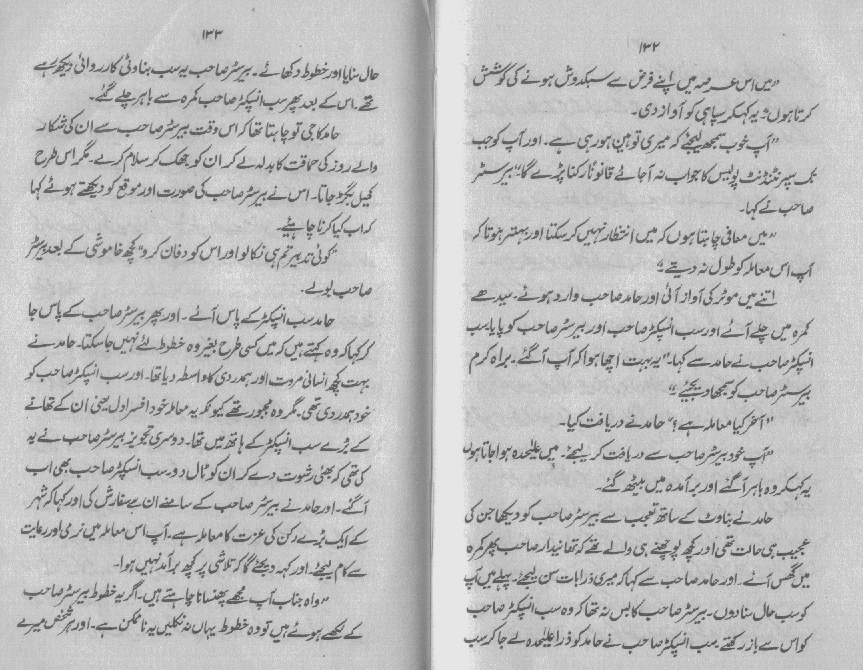 ۱۳۲
"میں اس عرصہ میں اپنے فرض سے سبکدوش ہونے کی کوشش
کرتا ہوں" یہ کہہ کر سپاہی کو آواز دی۔
"آپ خوب سمجھ لیجئے کہ میری توہین ہو رہی ہے۔ اور آپ کو جب
تک سپرنٹنڈنٹ پولیس کا جواب نہ آجائے قانوناً رکنا پڑے گا" بیرسٹر
صاحب نے کہا۔
"میں معافی چاہتا ہوں کہ میں انتظار نہیں کر سکتا اور بہتر ہوتا کہ
آپ اس معاملہ کو طول نہ دیتے"
اتنے میں موٹر کی آواز آئی اور حامد صاحب وارد ہوئے۔ سیدھے
کمرہ میں چلے آئے اور سب انسپکٹر صاحب اور بیرسٹر صاحب کو پایا۔ سب
انسپکٹر صاحب نے حامد سے کہا۔ "یہ بہت اچھا ہوا کہ آپ آگئے۔ براہ کرم
بیرسٹر صاحب کو سمجھا دیجئے"
"آخر کیا معاملہ ہے؟" حامد نے دریافت کیا۔
"آپ خود بیرسٹر صاحب سے دریافت کر لیجئے۔ میں علیٰحدہ ہوا جاتا ہوں
یہ کہکر وہ باہر آگئے اور برآمدہ میں بیٹھ گئے۔
حامد نے بناوٹ کے ساتھ تعجب سے بیرسٹر صاحب کو دیکھا جن کی
عجیب ہی حالت تھی اور کچھ پوچھنے ہی والے تھے کہ تھانیدار صاحب پھر کمرہ
میں گھس آئے۔ اور حامد صاحب سے کہا کہ میری ذرا بات سن لیجئے۔ پہلے میں آپ
کو سب حال سنا دوں۔ بیرسٹر صاحب کا بس نہ تھا کہ وہ سب انسپکٹر صاحب
کو اس سے باز رکھتے۔ سب انسپکٹر صاحب نے حامد کو ذرا علیٰحدہ لے جا کر سب
۱۳۳
حال بتایا اور خطوط دکھائے۔ بیرسٹر صاحب یہ سب بناوٹی کارروائی دیکھ رہے
تھے۔ اس کے بعد پھر سب انسپکٹر صاحب کمرہ سے باہر چلے گئے۔
حامد کا جی تو چاہتا تھا کہ اس وقت بیرسٹر صاحب سے ان کی شکار
والے روز کی حماقت کا بدلہ لے کر ان کو جھک کر سلام کرے۔ مگر اس طرح
کھیل بگڑ جاتا۔ اس نے بیرسٹر صاحب کی صورت اور موقع کو دیکھتے ہوئے کہا
کہ اب کیا کرنا چاہیئے۔
"کوئی تدبیر تم ہی نکالو اور اس کو دفان کرو" کچھ خاموشی کے بعد بیرسٹر
صاحب بولے۔
حامد سب انسپکٹر کے پاس آئے۔ اور پھر بیرسٹر صاحب کے پاس جا
کر کہا کہ وہ کہتے ہیں کہ میں کسی طرح بغیر وہ خطوط لئے نہیں جا سکتا۔ حامد نے
بہت کچھ انسانی مروت اور ہمدردی کا واسطہ دیا تھا۔ اور سب انسپکٹر صاحب کو
خود ہمدردی تھی۔ مگر وہ مجبور تھے کیونکہ یہ معاملہ خود افسر اول یعنی ان کے تھانے
کے بڑے سب انسپکٹر کے ہاتھ میں تھا۔ دوسری تجویز بیرسٹر صاحب نے یہ
کی تھی کہ بھئی رشوت دے کر ان کو ٹال دو۔ سب انسپکٹر صاحب بھی اب
آگئے۔ اور حامد نے بیرسٹر صاحب کے سامنے ان سے سفارش کی اور کہا کہ شہر
کے ایک بڑے رکن کی عزت کا معاملہ ہے۔ آپ اس معاملہ میں نرمی اور رعایت
سے کام لیجئے۔ اور کہہ دیجئے گا کہ تلاشی پر کچھ برآمد نہیں ہوا۔
"واہ جناب آپ مجھے پھنسانا چاہتے ہیں۔ اگر یہ خطوط بیرسٹر صاحب
کے لکھے ہوئے ہیں تو وہ خطوط یہاں نہ نکلیں یہ ناممکن ہے۔ اور ہر شخص میرے